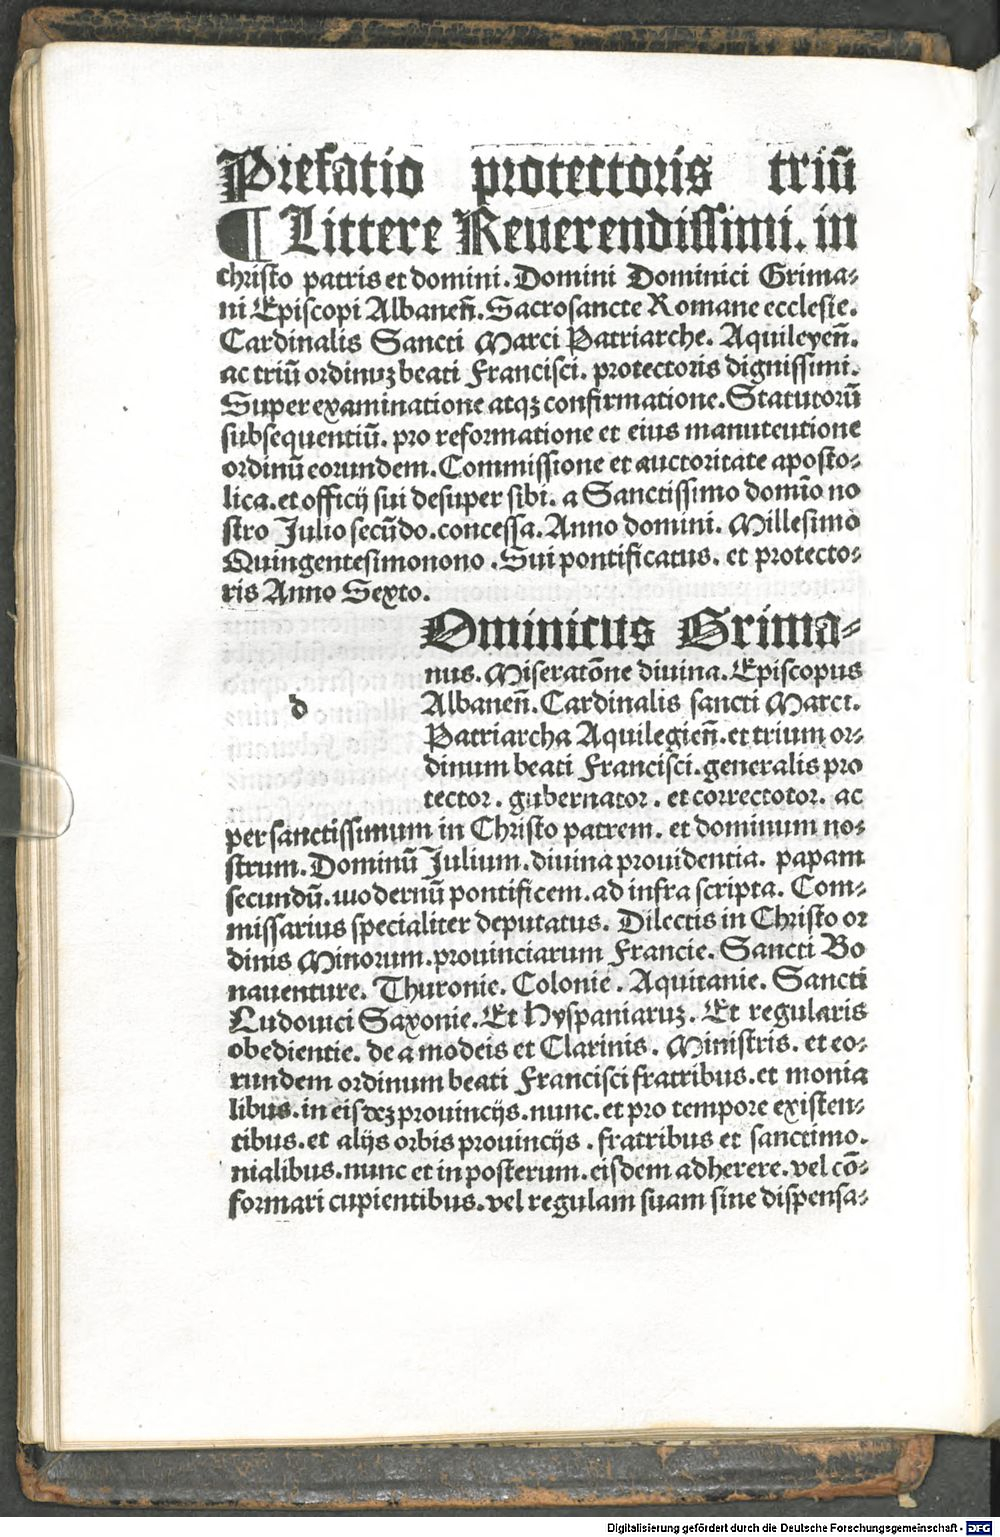 Prefatio protectoris triū
¶ Littere Reuerendissimi. in
christo patris et domini. Domini Dominici Grima⸗
ni Episcopi Albaneñ. Sacrosancte Romane ecclesie.
Cardinalis Sancti Marci Patriarche. Aquileyeñ.
ac triū ordinuꝫ beati Francisci. protectoris dignissimi.
Super examinatione atqꝫ confirmatione. Statutorū
subsequentiū. pro reformatione et eius manuteutione
ordinū eorundem. Commissione et auctoritate aposto⸗
lica. et officij sui desuper sibi. a Sanctissimo domīo no
stro Julio secūdo. concessa. Anno domini. Millesimo
Quingentesimonono. Sui pontificatus. et protecto⸗
ris Anno Sexto.
Ominicus Grima⸗
nus. Miseratōne diuina. Episcopus
d
Albaneñ. Cardinalis sancti Marci.
Patriarcha Aquilegieñ. et trium or⸗
dinum beati Francisci. generalis pro
tector. gubernator. et correctotor. ac
per sanctissimum in Christo patrem. et dominum no⸗
strum. Dominū Julium. diuina prouidentia. papam
secundū. wodernū pontificem. ad infra scripta. Com⸗
missarius specialiter deputatus. Dilectis in Christo or
dinis Minorum. prouinciarum Francie. Sancti Bo
nauenture. Thuronie. Colonie. Aquitanie. Sancti
Ludouici Saxonie. Et Hyspaniaruꝫ. Et regularis
obedientie. de amodeis et Clarinis. Ministris. et eo⸗
rundem ordinum beati Francisci fratribus. et monia
libus. in eisdeꝫ prouincijs. nunc. et pro tempore existen⸗
tibus. et alijs orbis prouincijs. fratribus et sanctimo.
nialibus. nunc et in posterum. eisdem adherere. vel cō⸗
formari cupientibus. vel regulam suam sine dispensa⸗
Digitalisierung gefördert durch die Deutsche Forschungsgemeinschaft - DFG